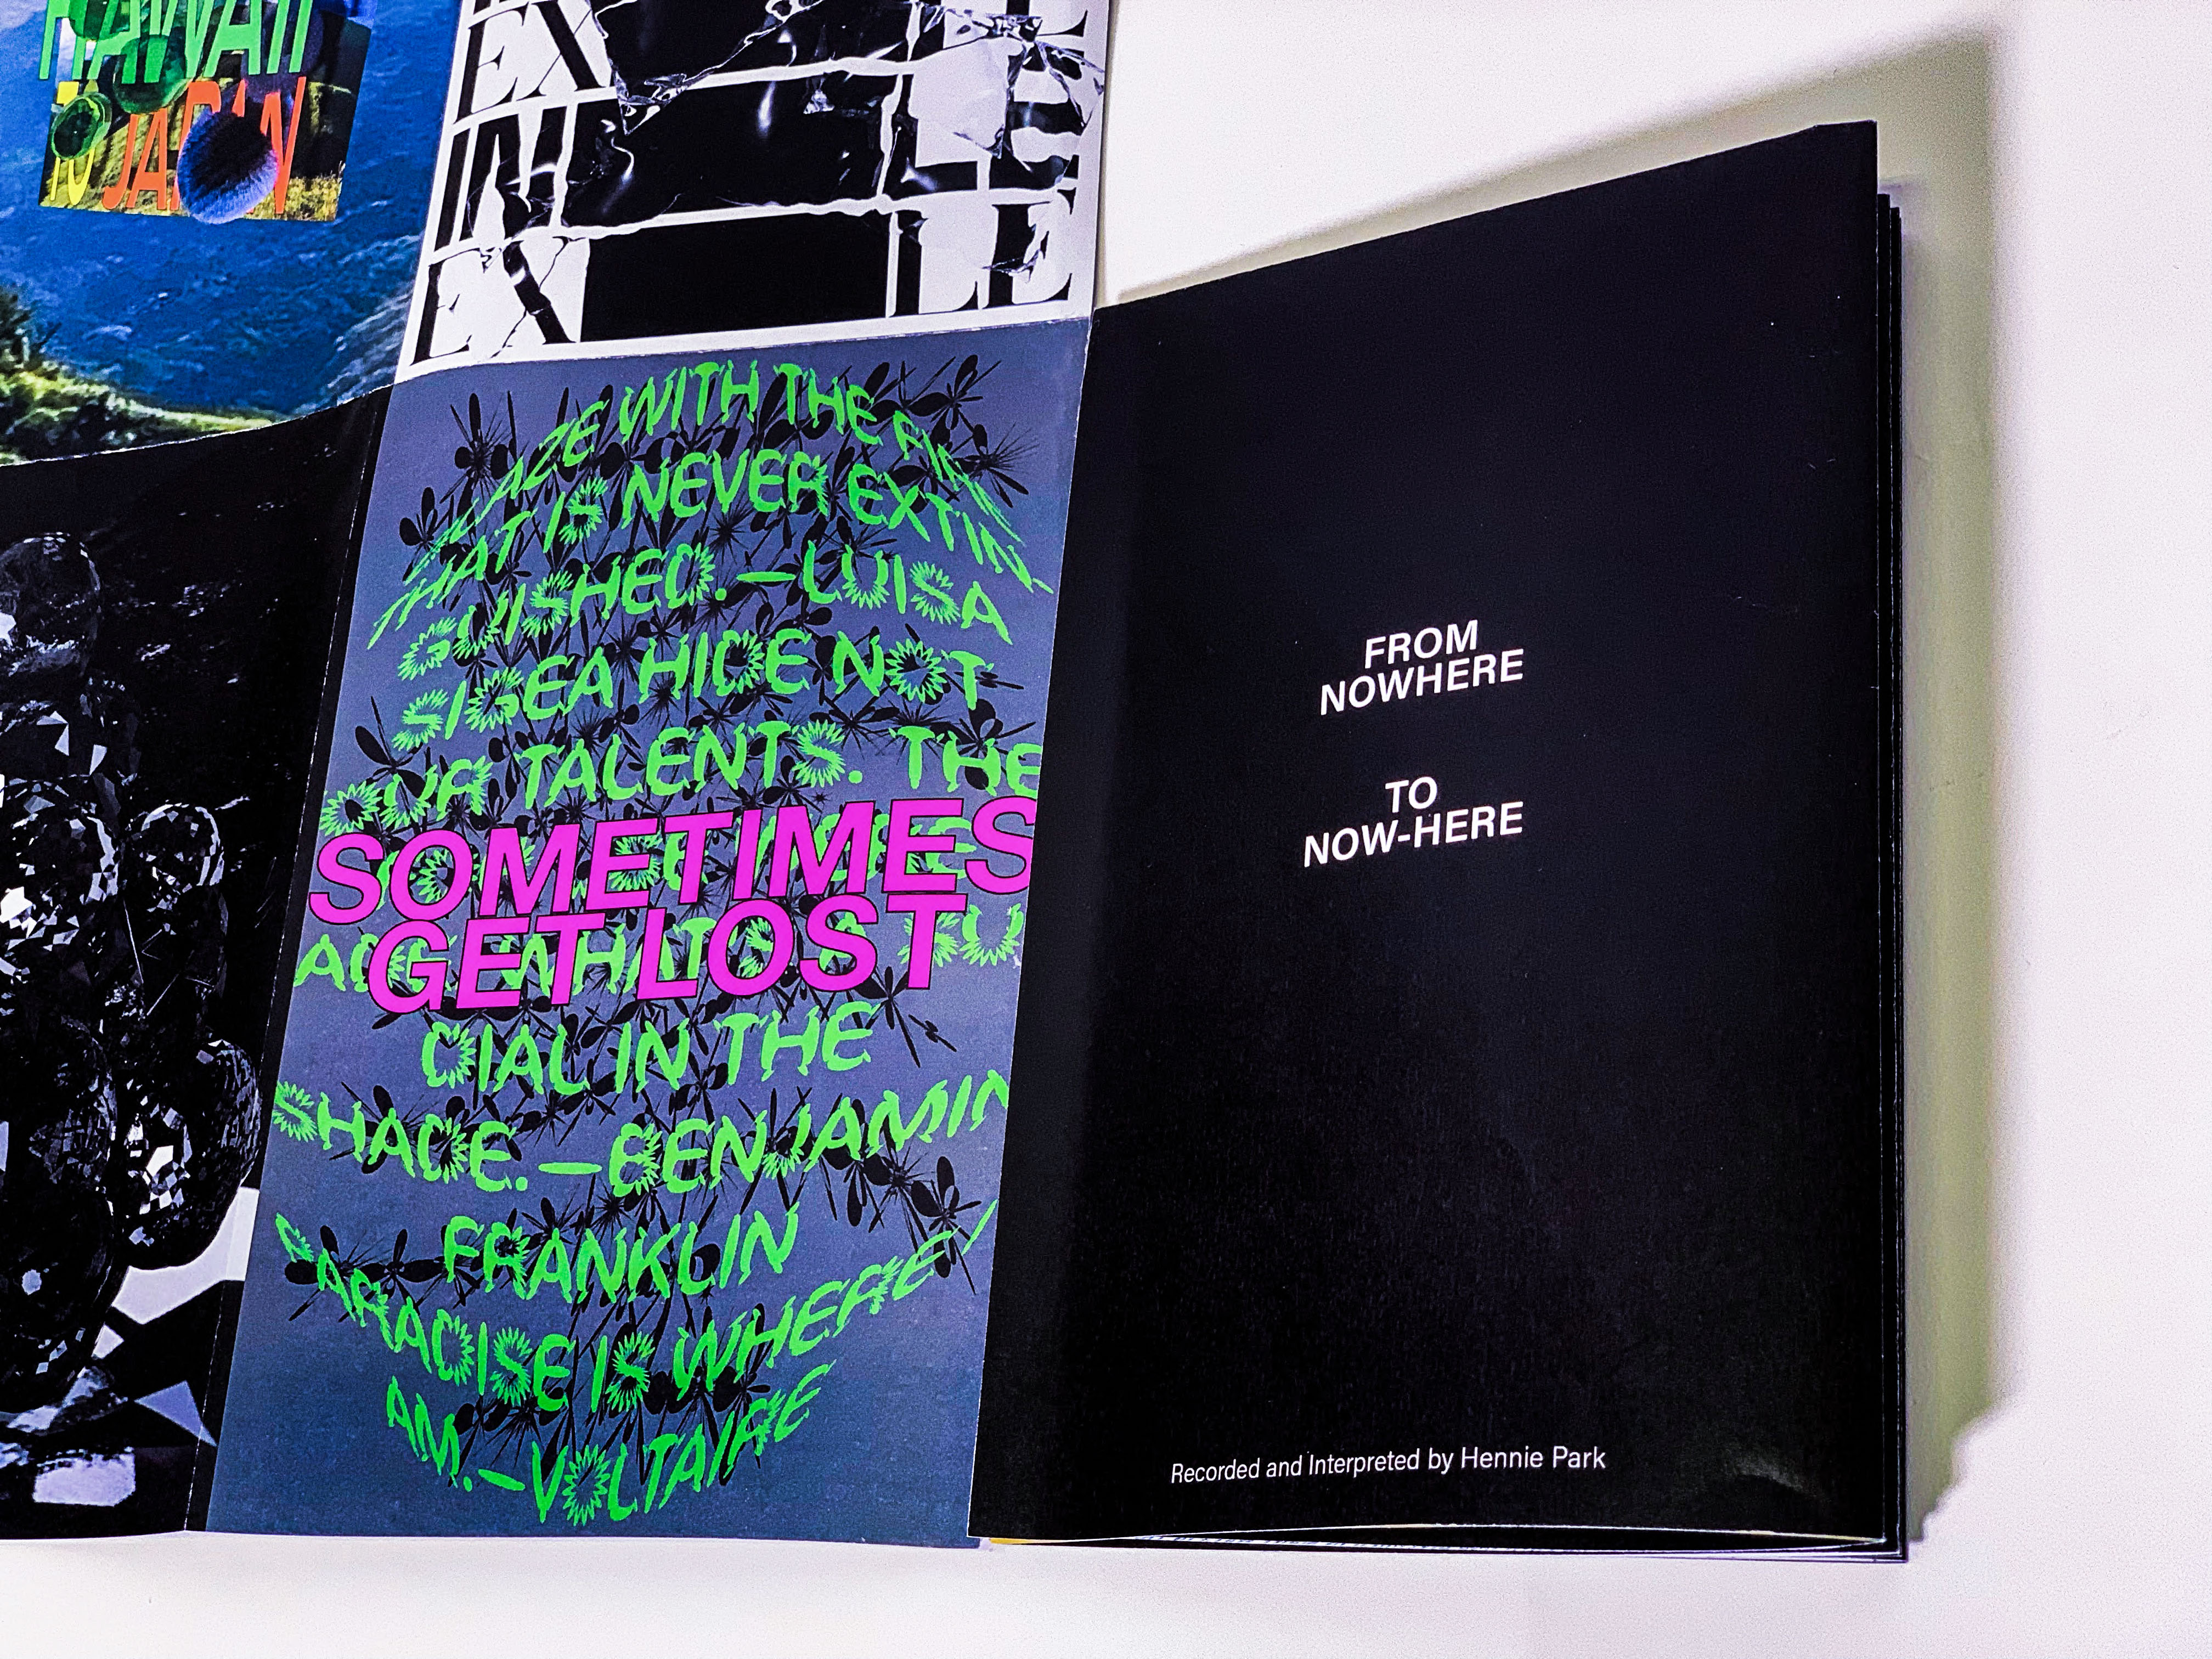 HAWAII
TO JAPAN
EX LE
IN LE
EX LE
WITH THE
THAT IS NEVER EXTIN-
GUISHED. —LUISA
SIGEA HIDE NOT
OUR TALENTS. THE
SOMETIMES
GET LOST
DIAL IN THE
SHADE. —BENJAMIN
FRANKLIN
PARADISE IS WHERE I
AM. —VOLTAIRE
FROM
NOWHERE
TO
NOW-HERE
Recorded and Interpreted by Hennie Park